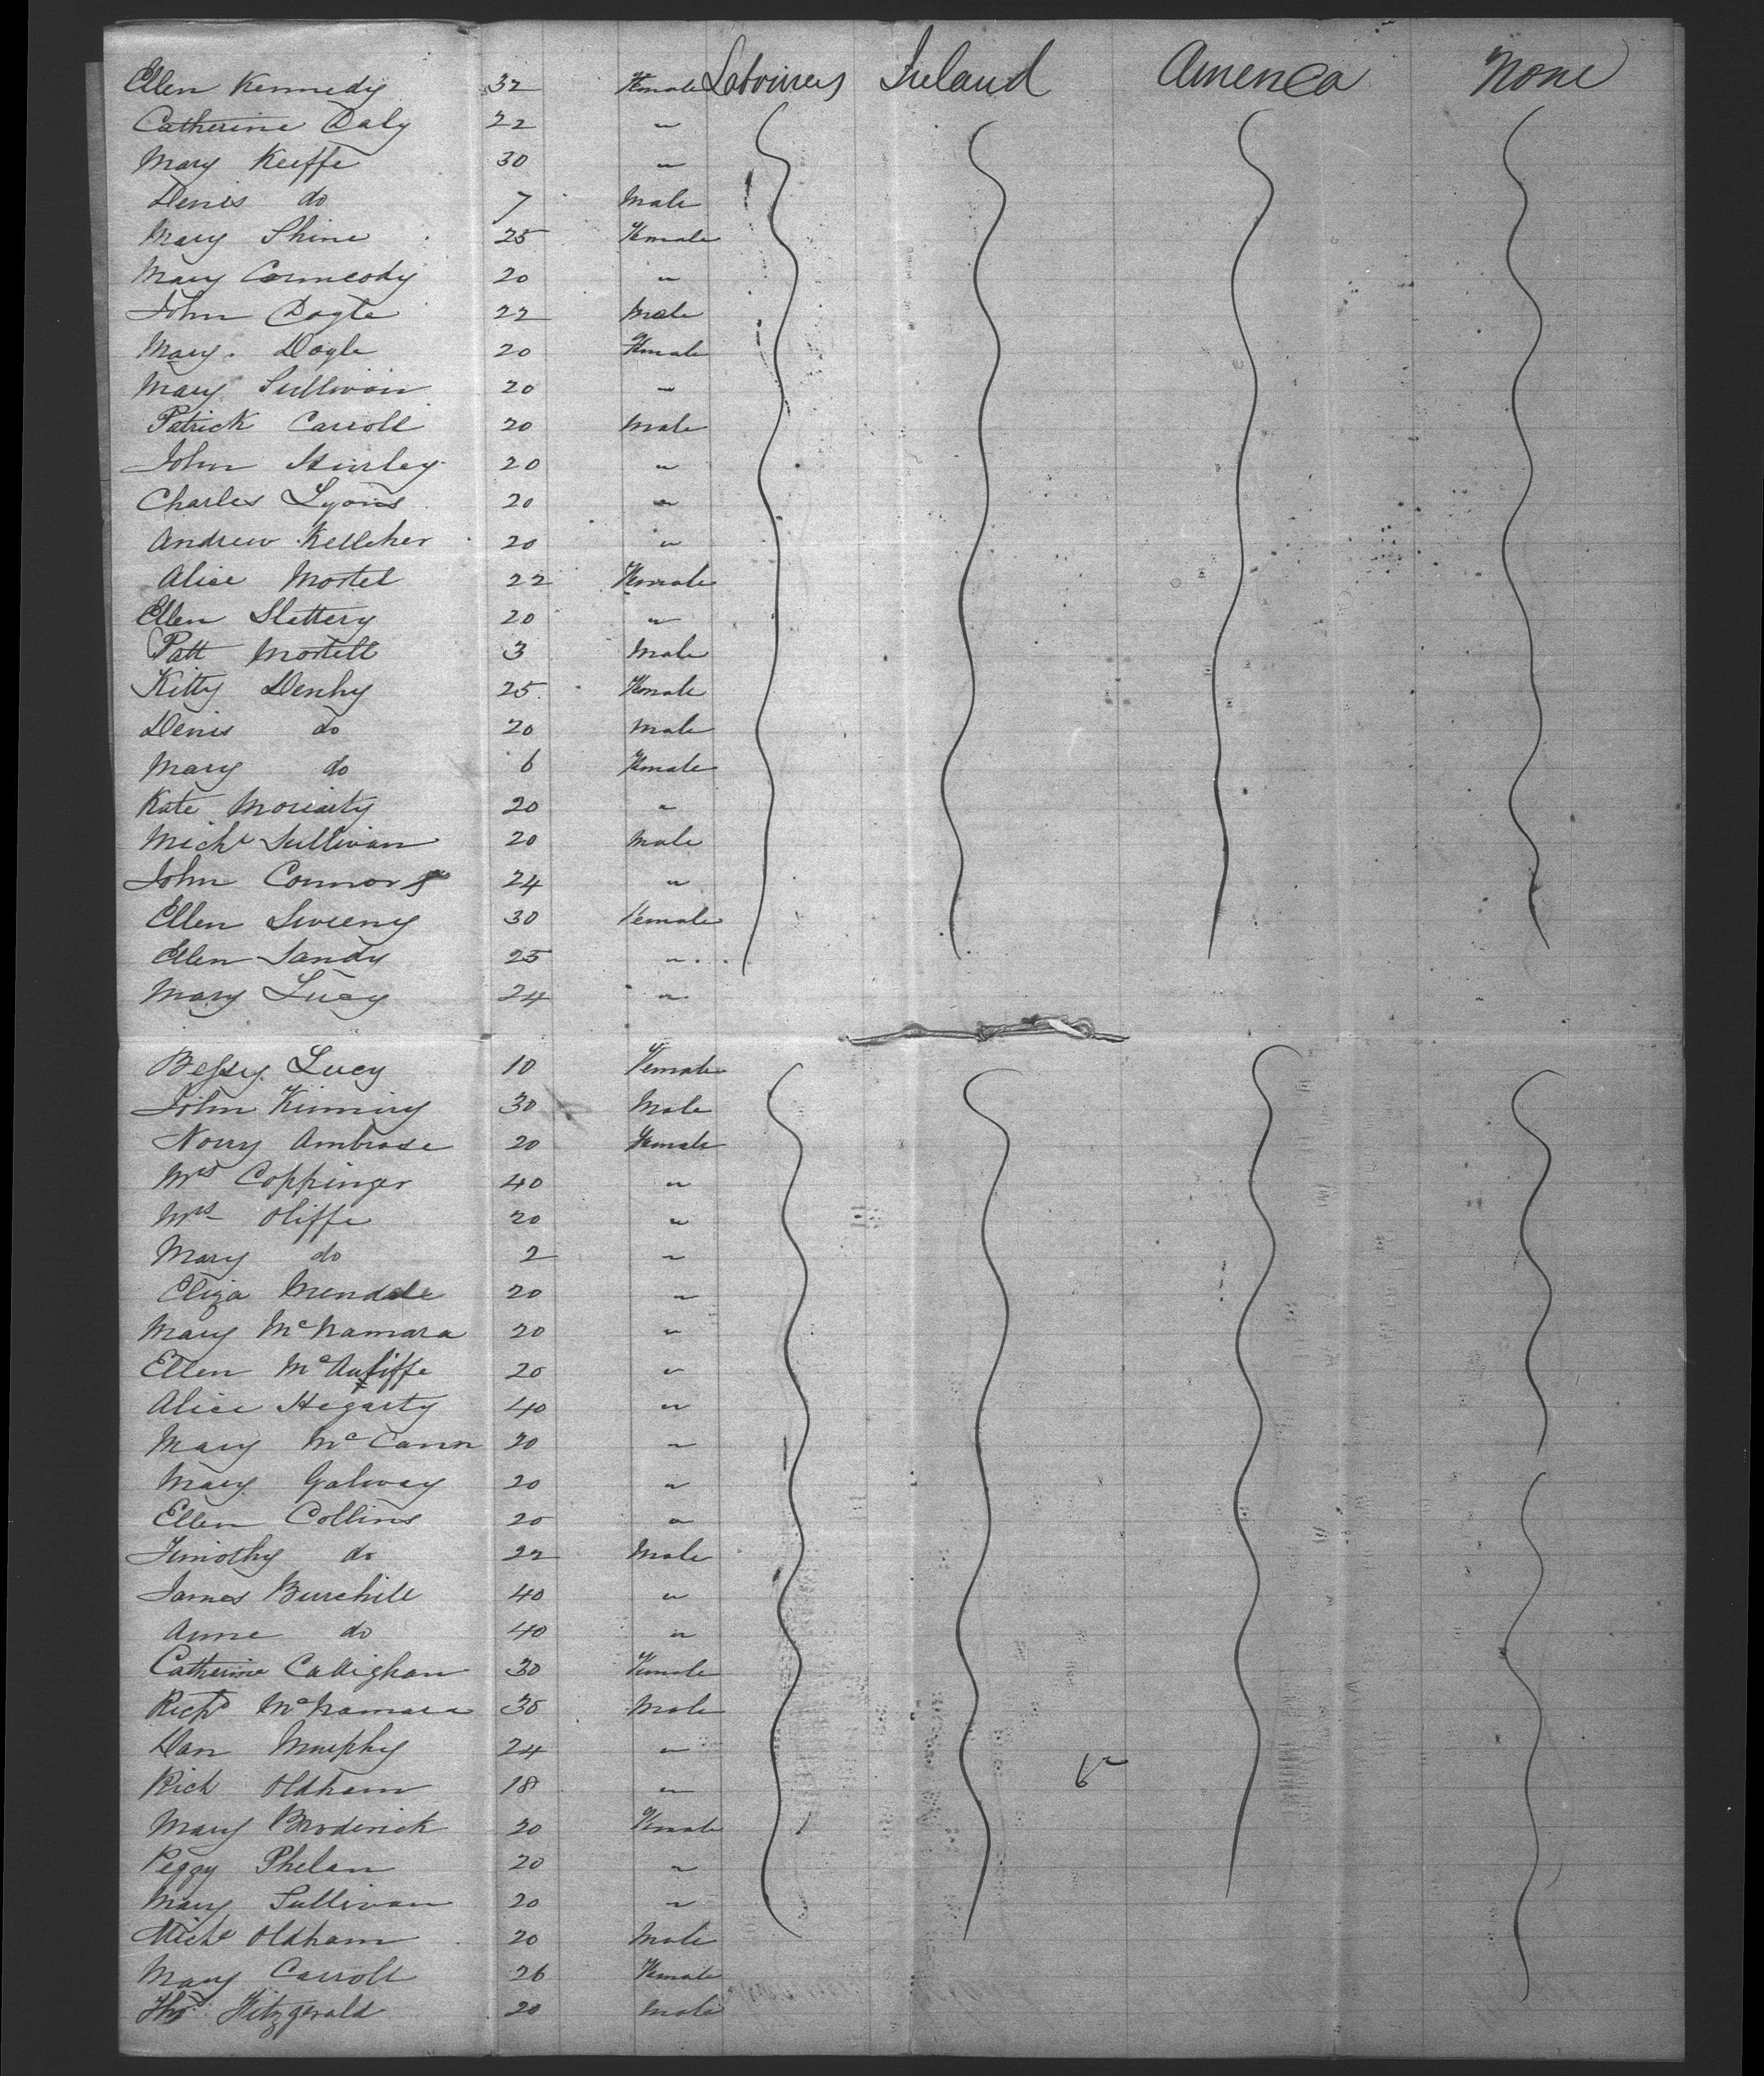 Ellen Kennedy 32 Female Labourers Ireland America None
Catherine Daly 22 "
Mary Keeffe 30 "
Denis do 7 Male
Mary Shine 25 Female
Mary Cormeody 20 "
John Dogle 22 Male
Mary Dogle 20 Female
Mary Sullivan 20 "
Patrick Carroll 20 Male
John Hurley 20 "
Charles Lyons 20 "
Andrew Kelleher 20 "
Alice Mortel 22 Female
Ellen Slattery 20 "
Patt Mortell 3 Male
Kitty Denhy 25 Female
Denis do 20 Male
Mary do 6 Female
Kate Moriarty 20 "
Michl Sullivan 20 Male
John Connors 24 "
Ellen Sweeny 30 Female
Ellen Sandy 25 "
Mary Lucy 24 "
Bessy Lucy 10 Female
John Kinniry 30 Male
Norry Ambrose 20 Female
Mrs Coppinger 40 "
Mrs Oliffe 20 "
Mary do 2 "
Eliza 20 "
Mary McNamara 20 "
Ellen McAuliffe 20 "
Alice Hegarty 40 "
Mary McCann 20 "
Mary Galway 20 "
Ellen Collins 20 "
Timothy do 22 Male
James Burchill 40 "
Anne do 40 "
Catherine Callighan 30 Female
Richd McNamara 30 Male
Dan Murphy 24 "
Rich Oldham 18 "
Mary Broderick 20 Female
Peggy Phelan 20 "
Mary Sullivan 20 "
Michl Oldham 20 Male
Mary Carroll 26 Female
Thos Fitzgerald 20 Male